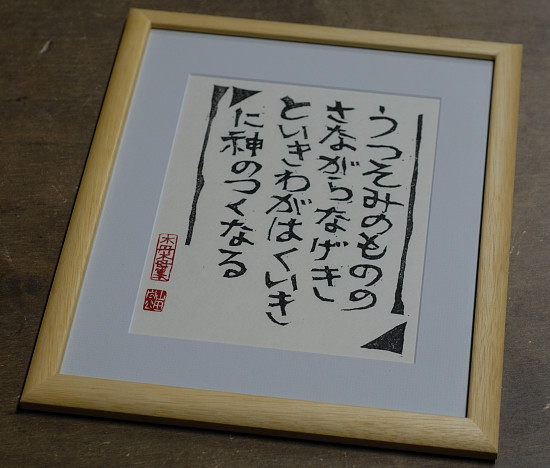 うつそみのものの
さながらなげき
といきわがはくいき
に神のつくなる